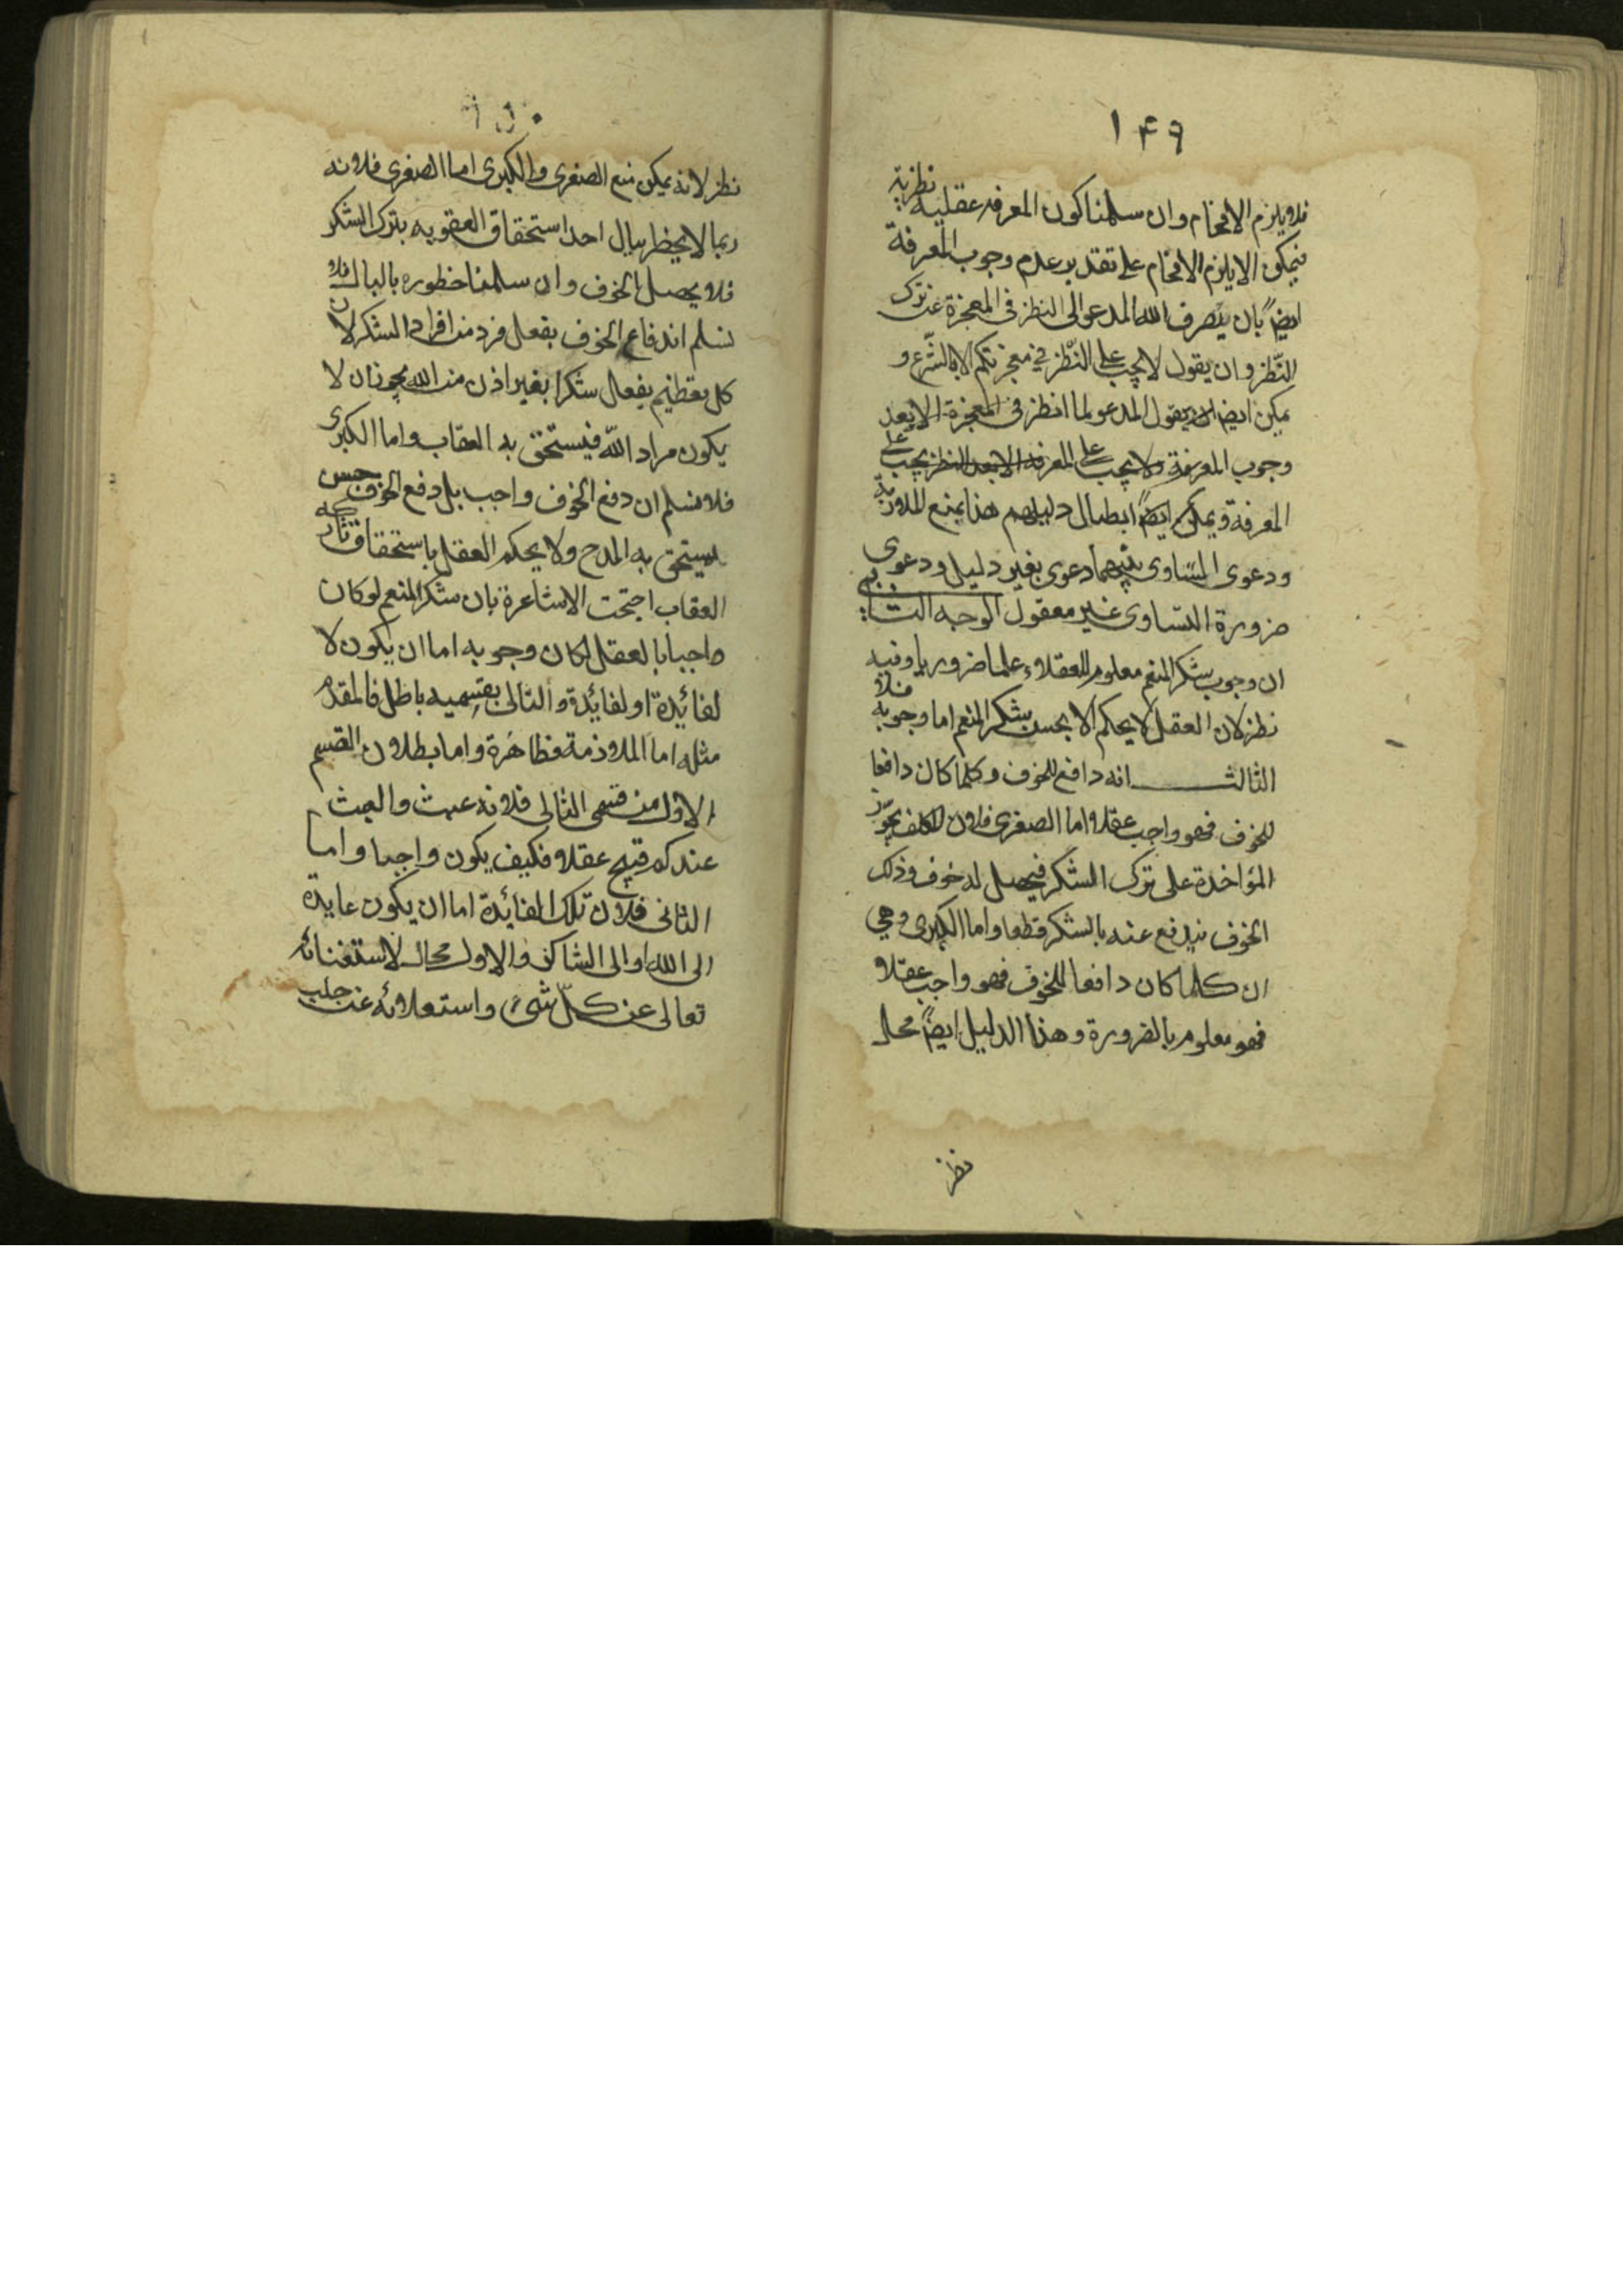 ۱۴۹
فلا يلزم الافحام وان سلمنا كون المعرفه عقليه نظرية
فيمكن الا يلزم الافحام على تقدير عدم وجوب المعرفة
ايضاً بان يصرف الله المدعو الى النظر فى المعجزة عن ترك
النّظر وان يقول لا يجب على النّظر في معجزتكم الا بالشّرع و
يمكن ايضا ان يقول المدعو لما انظر فى المعجزة الا بعد
وجوب المعرفة ولا يجب على المعرفه الا بعد النظر يجب على
المعرفة ويمكن ايضاً ابطال دليلهم هذا بمنع الملازمة
ودعوى التساوى بينهما دعوى بغير دليل ودعوى
ضرورة التساوى غير معقول الوجه الثانى
ان وجوب شكر المنعم معلوم للعقلاء علما ضروريا وفيه
نظر لان العقل لا يحكم الا بحسن شكر المنعم اما وجوبه فلا
الثالث انه دافع للخوف وكلما كان دافعا
للخوف فهو واجب عقلا اما الصغرى فلان المكلف يجوّز
المؤاخدة على ترك الشكر فيحصل له خوف وذلك
الخوف يندفع عنه بالشكر قطعا واما الكبرى وهي
ان كلما كان دافعا للخوف فهو واجب عقلا
فهو معلوم بالضرورة وهذا الدليل ايضاً محل
نظر
۱۵۰
نظر لانه يمكن منع الصغرى والكبرى اما الصغرى فلانه
ربما لا يخطر ببال احد استحقاق العقوبه بترك الشكر
فلا يحصل الخوف وان سلمنا خطوره بالبال فلا
نسلم اندفاع الخوف بفعل فرد من افراد الشكر لان
كل تعظيم يفعل شكرا بغير اذن من الله يجوز ان لا
يكون مراد الله فيستحق به العقاب واما الكبرى
فلا نسلم ان دفع الخوف واجب بل دفع الخوف حسن
يستحق به المدح ولا يحكم العقل باستحقاق تاركه
العقاب احتجت الاشاعرة بان شكر المنعم لو كان
واجبا بالعقل لكان وجوبه اما ان يكون لا
لفائدة او لفائدة والتالى بقسميه باطل فالمقدم
مثله اما الملازمة فظاهرة واما بطلان القسم
الاول من قسمى التالى فلانه عبث والعبث
عندكم قبيح عقلا فكيف يكون واجبا واما
الثانى فلان تلك الفائدة اما ان يكون عايدة
الى الله او الى الشاكر والاول محال لاستغنائه
تعالى عن كلّ شىء واستعلائه عن جلب